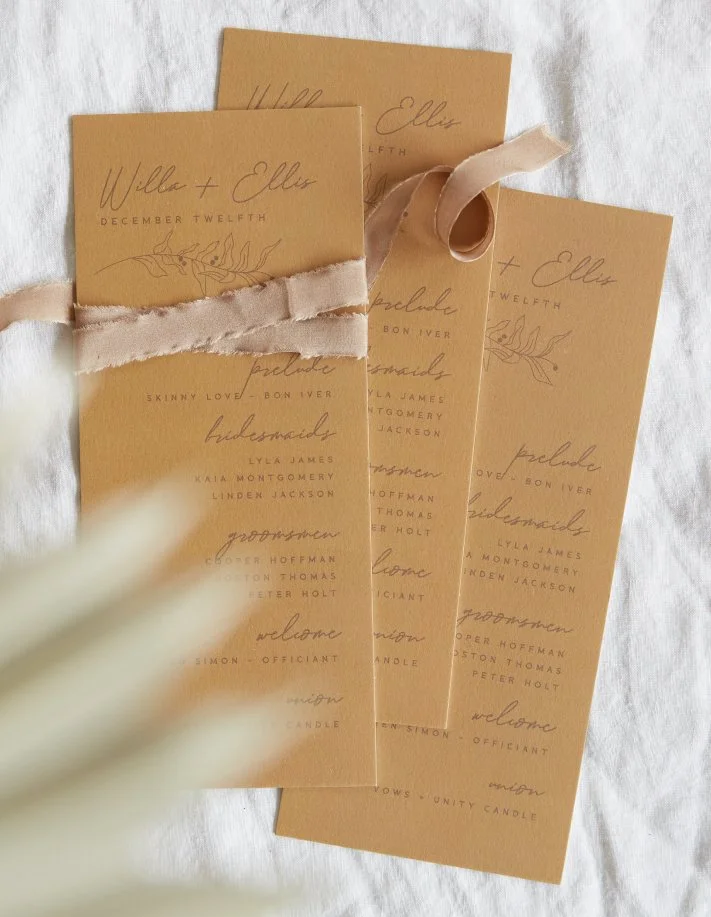 Willa + Ellis
DECEMBER TWELFTH
prelude
SKINNY LOVE - BON IVER
bridesmaids
LYLA JAMES
KAIA MONTGOMERY
LINDEN JACKSON
groomsmen
COOPER HOFFMAN
BOSTON THOMAS
PETER HOLT
welcome
EN SIMON - OFFICIANT
union
CANDLE
Willa Ellis
LFTH
prelude
BON IVER
esmaids
LYLA JAMES
NTGOMERY
JACKSON
omsmen
HOFFMAN
THOMAS
ER HOLT
lcome
ICIANT
union
CANDLE
+ Ellis
TWELFTH
prelude
OVE - BON IVER
bridesmaids
LYLA JAMES
A MONTGOMERY
INDEN JACKSON
groomsmen
OPER HOFFMAN
OSTON THOMAS
PETER HOLT
welcome
EN SIMON - OFFICIANT
union
VOWS + UNITY CANDLE